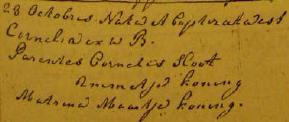 28 Octobris. Nata et Baptizata est
Cornelia ex w B.
Parentes Cornelis Sloot
Annnetje koning
Matrina Maartje koning.